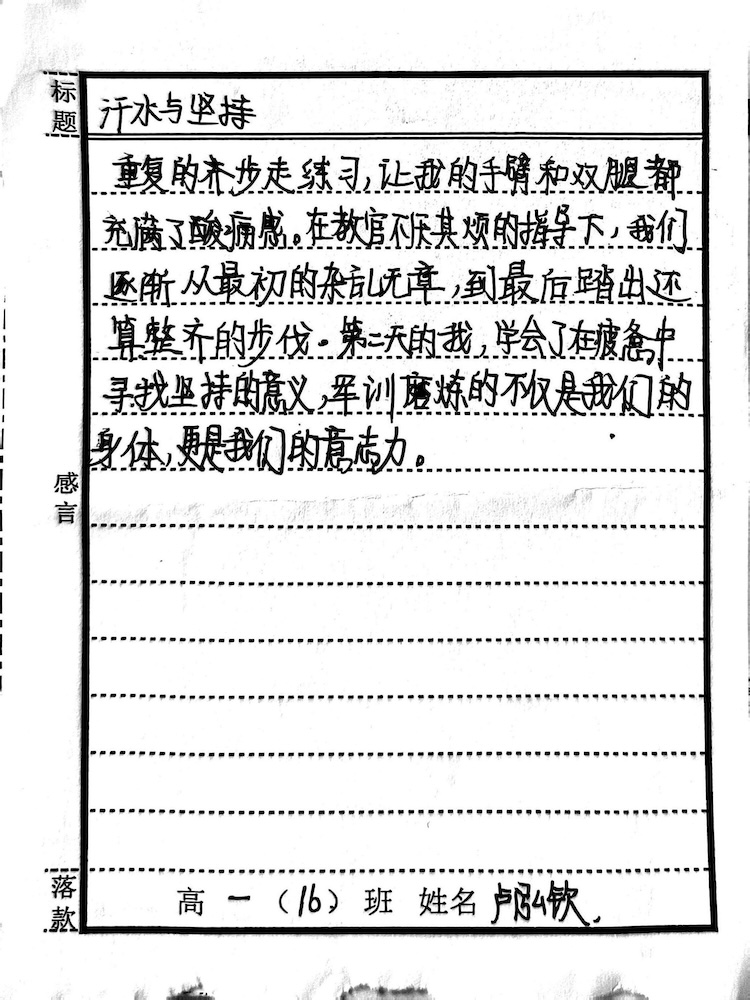 标题
汗水与坚持
重复的齐步走练习,让我的手臂和双腿都
充满了酸痛感。在教官不厌其烦的指导下,我们
逐渐从最初的杂乱无章,到最后踏出还
算整齐的步伐。第二天的我,学会了在疲惫中
寻找坚持的意义,军训磨炼的不仅是我们的
身体,更是我们的意志力。
感言
落款
高一(16)班 姓名 卢弘钦